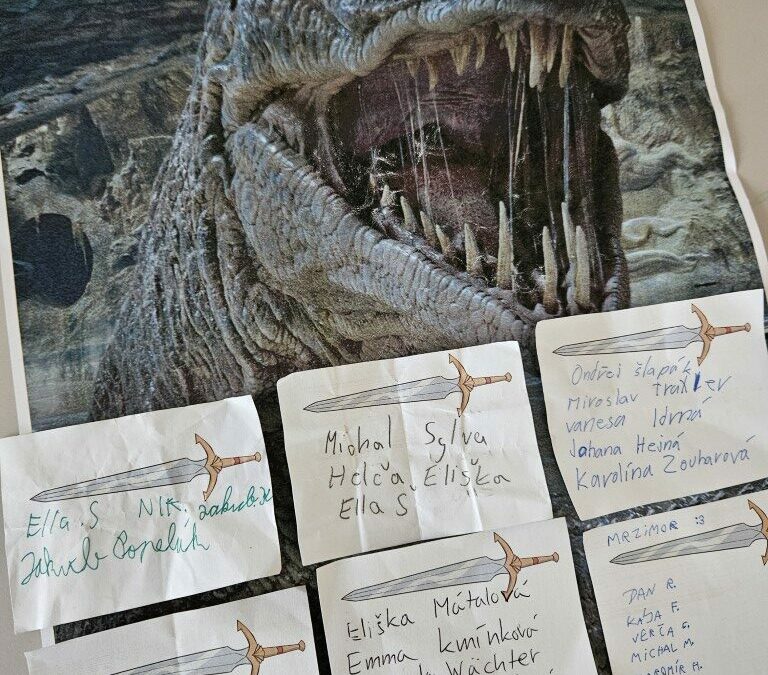 Ella.S NIK.
Jakub Popelák
Michal Sylva
Helča Eliška
Ella S
Ondřej šlapák
Miroslav Traxler
vanesa Idrná
Johana Hejná
Karolína Zouharová
Eliška Mátalová
Emma Kmínková
Wächter
MRZIMOR :3
DAN R.
KÁJA F.
VERČA
MICHAL M.